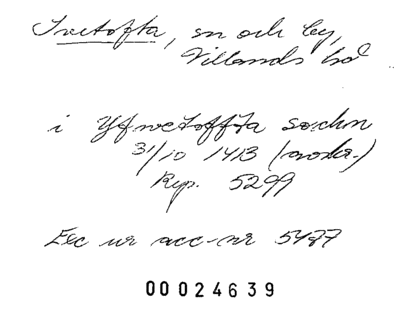 Ivetofta, sn och by,
Villands hd
i Yfwetoffta sockn
31/10 1413 (avskr.)
Rep. 5299
Exc ur acc-nr 5487
00024639